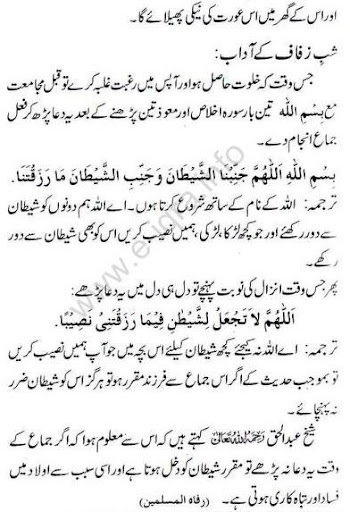 اور اس کے گھر میں اس عورت کی نیکی پھیلائے گا۔
شب زفاف کے آداب:
جس وقت کہ خلوت حاصل ہو اور آپس میں رغبت غلبہ کرے تو قبل مجامعت
مع بِسْمِ اللّٰه تین بار سورہ اخلاص اور معوذتین پڑھنے کے بعد یہ دعا پڑھ کر فعل
جماع انجام دے۔
بِسْمِ اللهِ اَللّٰهُمَّ جَنِّبْنَا الشَّيْطَانَ وَجَنِّبِ الشَّيْطَانَ مَا رَزَقْتَنَا۔
ترجمہ: اللہ کے نام کے ساتھ شروع کرتا ہوں۔ اے اللہ ہم دونوں کو شیطان
سے دور رکھئے اور جو کچھ لڑکا، لڑکی، ہمیں نصیب کریں اس کو بھی شیطان سے دور
رکھے۔
پھر جس وقت انزال کی نوبت پہنچے تو دل ہی دل میں یہ دعا پڑھے:
اَللّٰهُمَّ لاَ تَجْعَلْ لِشَّيْطٰنِ فِيْمَا رَزَقْتَنِىْ نَصِيْبًا.
ترجمہ: اے اللہ نہ کیجئے کچھ شیطان کیلئے اس بچہ میں جو آپ ہمیں نصیب کریں
تو بموجب حدیث کے اگر اس جماع سے فرزند مقرر ہو تو ہرگز اس کو شیطان ضرر
نہ پہنچائے۔
شیخ عبدالحق رَحْمَۃُاللّٰہِ تَعَالٰی کہتے ہیں کہ اس سے معلوم ہوا کہ اگر جماع کے
وقت یہ دعا نہ پڑھے تو مقرر شیطان کو دخل ہوتا ہے اور اسی سبب سے اولاد میں
فساد اور تباہ کاری ہوتی ہے۔ (رفاه المسلمین)